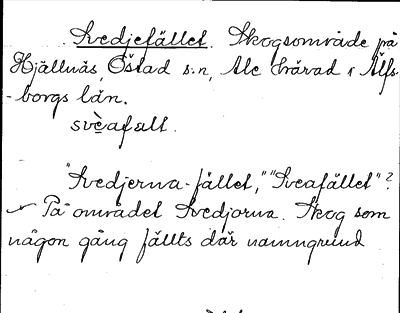 Svedjefället. Skogsområde på
Hjällnäs, Östad s:n, Ale härad i Älfs-
-borgs län.
svèafalt.
"Svedjerna-fället," "Sveafället"?
På området Svedjorna. Skog som
någon gång fällts där namngivits